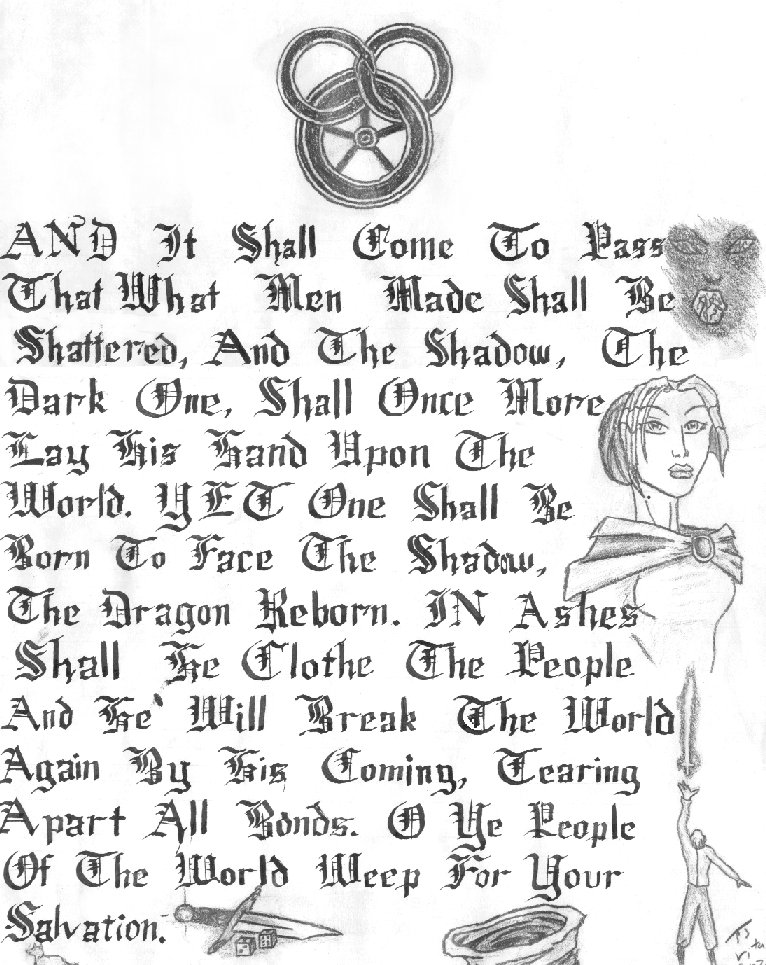 AND It Shall Come To Pass
That What Men Made Shall Be
Shattered, And The Shadow, The
Dark One, Shall Once More
Lay His Hand Upon The
World. YET One Shall Be
Born To Face The Shadow,
The Dragon Reborn. IN Ashes
Shall He Clothe The People
And He Will Break The World
Again By His Coming, Tearing
Apart All Bonds. O Ye People
Of The World Weep For Your
Salvation.